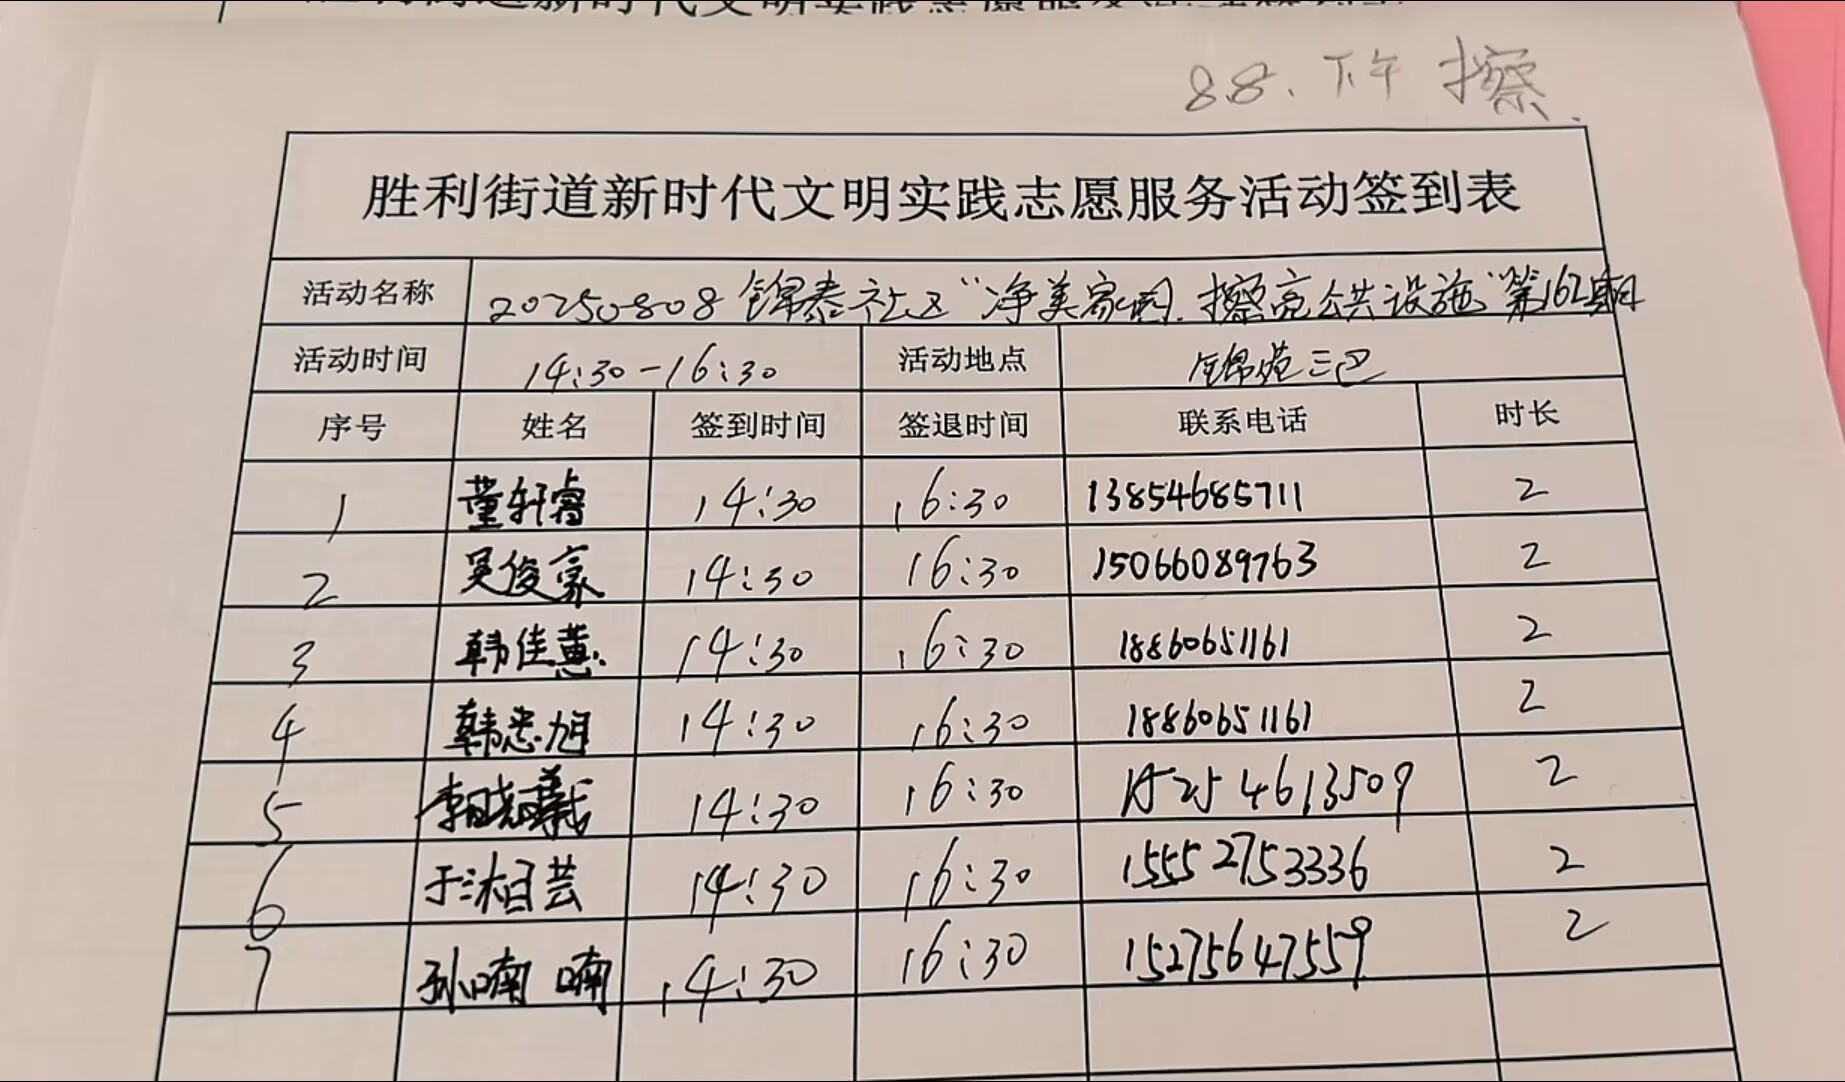 8.8. 下午 擦
胜利街道新时代文明实践志愿服务活动签到表
活动名称 20250808 锦泰社区“净美家园.擦亮公共设施”第162期
活动时间 14:30-16:30 活动地点 锦苑三区
序号 姓名 签到时间 签退时间 联系电话 时长
1 董轩睿 14:30 16:30 13854685711 2
2 吴俊豪 14:30 16:30 15066089763 2
3 韩佳蕙 14:30 16:30 18860651161 2
4 韩忠旭 14:30 16:30 18860651161 2
5 李晓羲 14:30 16:30 15254613509 2
6 于沐芸 14:30 16:30 15552753336 2
7 孙喃喃 14:30 16:30 15275647559 2